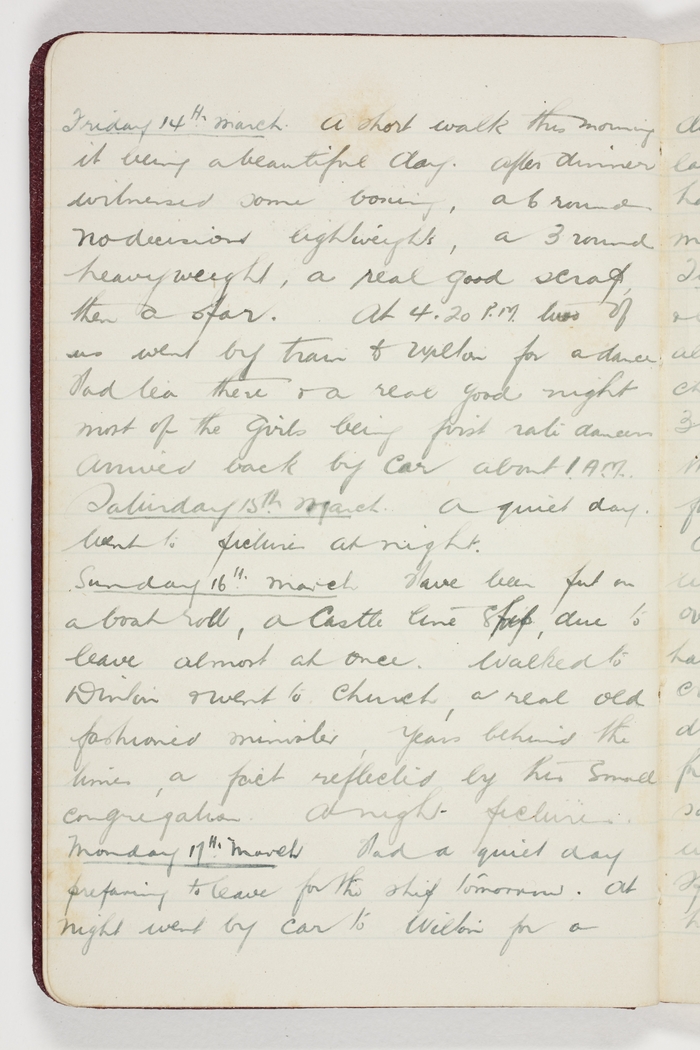 Friday 14th March. A short walk this morning
it being a beautiful day. After dinner
witnessed some boxing, a 6 round
no decision lightweights, a 3 round
heavyweight, a real good scrap,
then a spar. At 4.20 P.M. two of
us went by train to Wilton for a dance
Had tea there & a real good night
most of the Girls being first rate dancers
Arrived back by car about 1 A.M.
Saturday 15th March. A quiet day.
Went to pictures at night.
Sunday 16th March Have been put on
a boat roll, a Castle line Ship, due to
leave almost at once. Walked to
Dinton & went to Church, a real old
fashioned minister, years behind the
times, a fact reflected by his Small
congregation. At night pictures.
Monday 17th March Had a quiet day
preparing to leave for the ship tomorrow. At
night went by car to Wilton for a